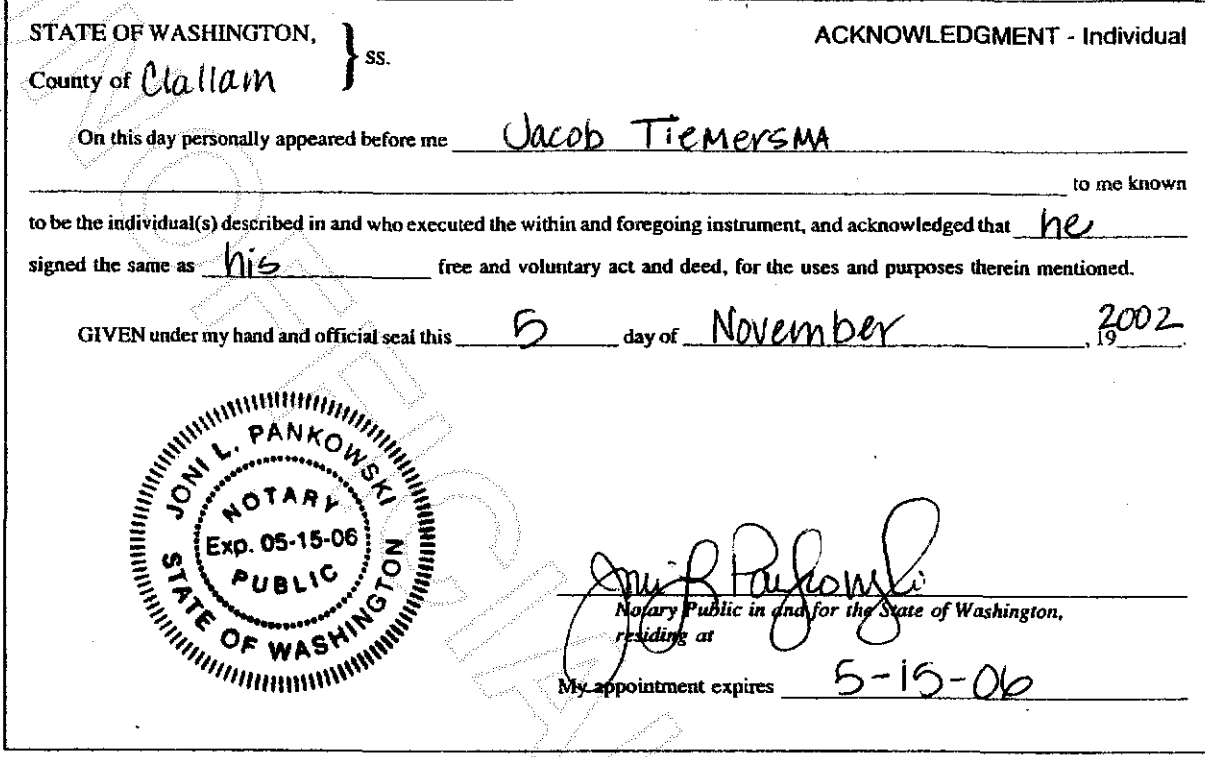 STATE OF WASHINGTON,
ACKNOWLEDGMENT - Individual
ss.
County of Clallam
On this day personally appeared before me Jacob Tiemersma
to me known
to be the individual(s) described in and who executed the within and foregoing instrument, and acknowledged that he
signed the same as his free and voluntary act and deed, for the uses and purposes therein mentioned.
GIVEN under my hand and official seal this 5 day of November, 19 2002.
JONI L. PANKOWSKI
NOTARY
Exp. 05-15-06
PUBLIC
STATE OF WASHINGTON
Joni L Pankowski
Notary Public in and for the State of Washington,
residing at
My appointment expires 5-15-06